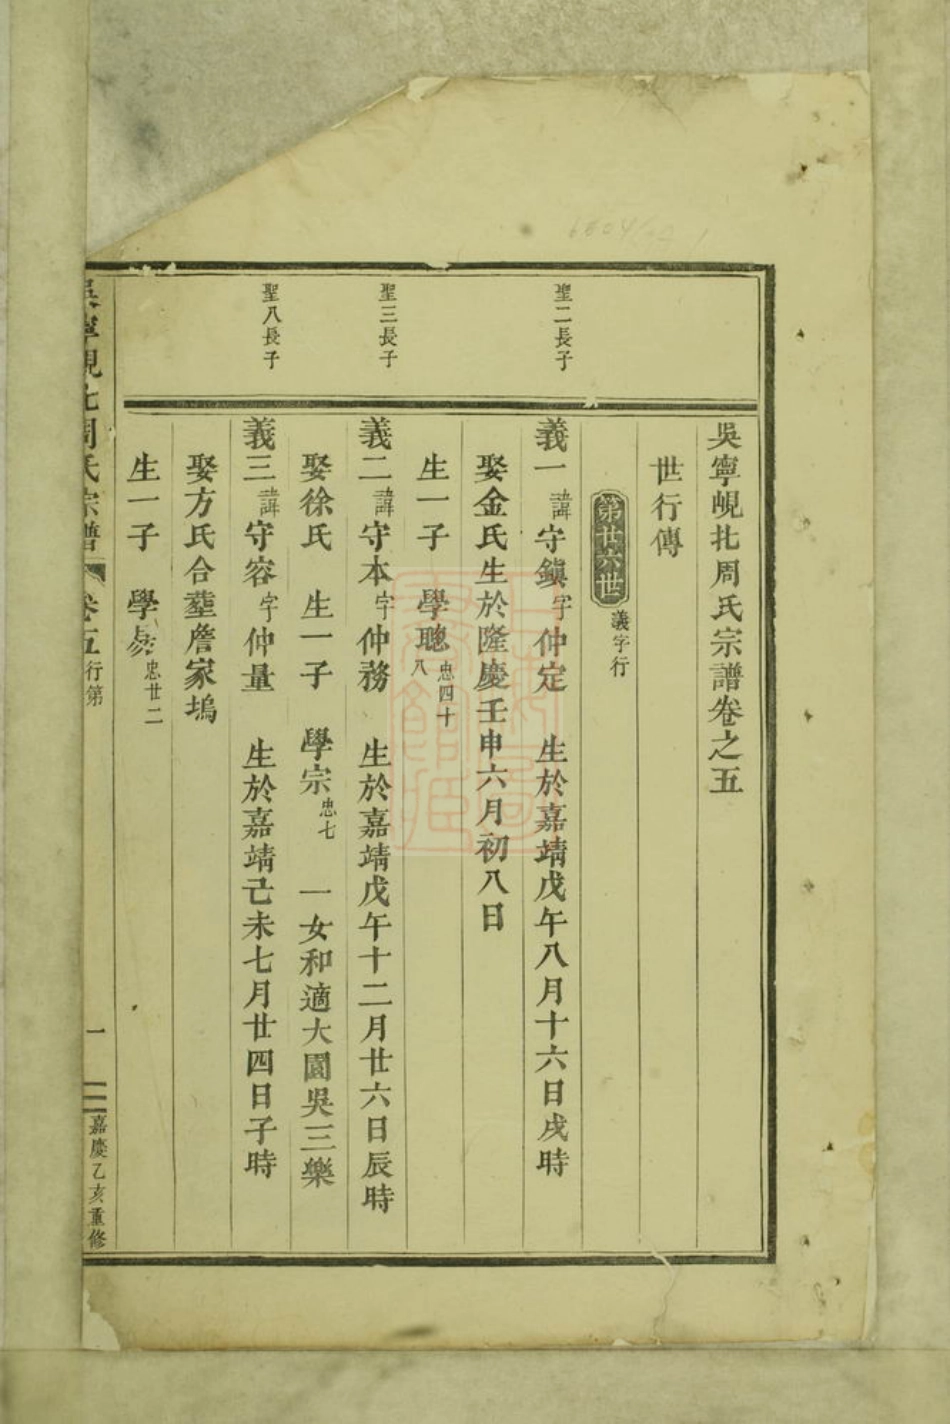 吳寧峴北周氏宗譜卷之五
世行傳
第廿六世 義字行
聖二長子
義一諱守鎮字仲定 生於嘉靖戊午八月十六日戌時
娶金氏生於隆慶壬申六月初八日
生一子 學聰忠四十八
聖三長子
義二諱守本字仲務 生於嘉靖戊午十二月廿六日辰時
娶徐氏 生一子 學宗忠七 一女和適大園吳三樂
聖八長子
義三諱守容字仲量 生於嘉靖己未七月廿四日子時
娶方氏合塟詹家塢
生一子 學易忠廿二
吳寧峴北周氏宗譜 卷五 行第 一 嘉慶乙亥重修